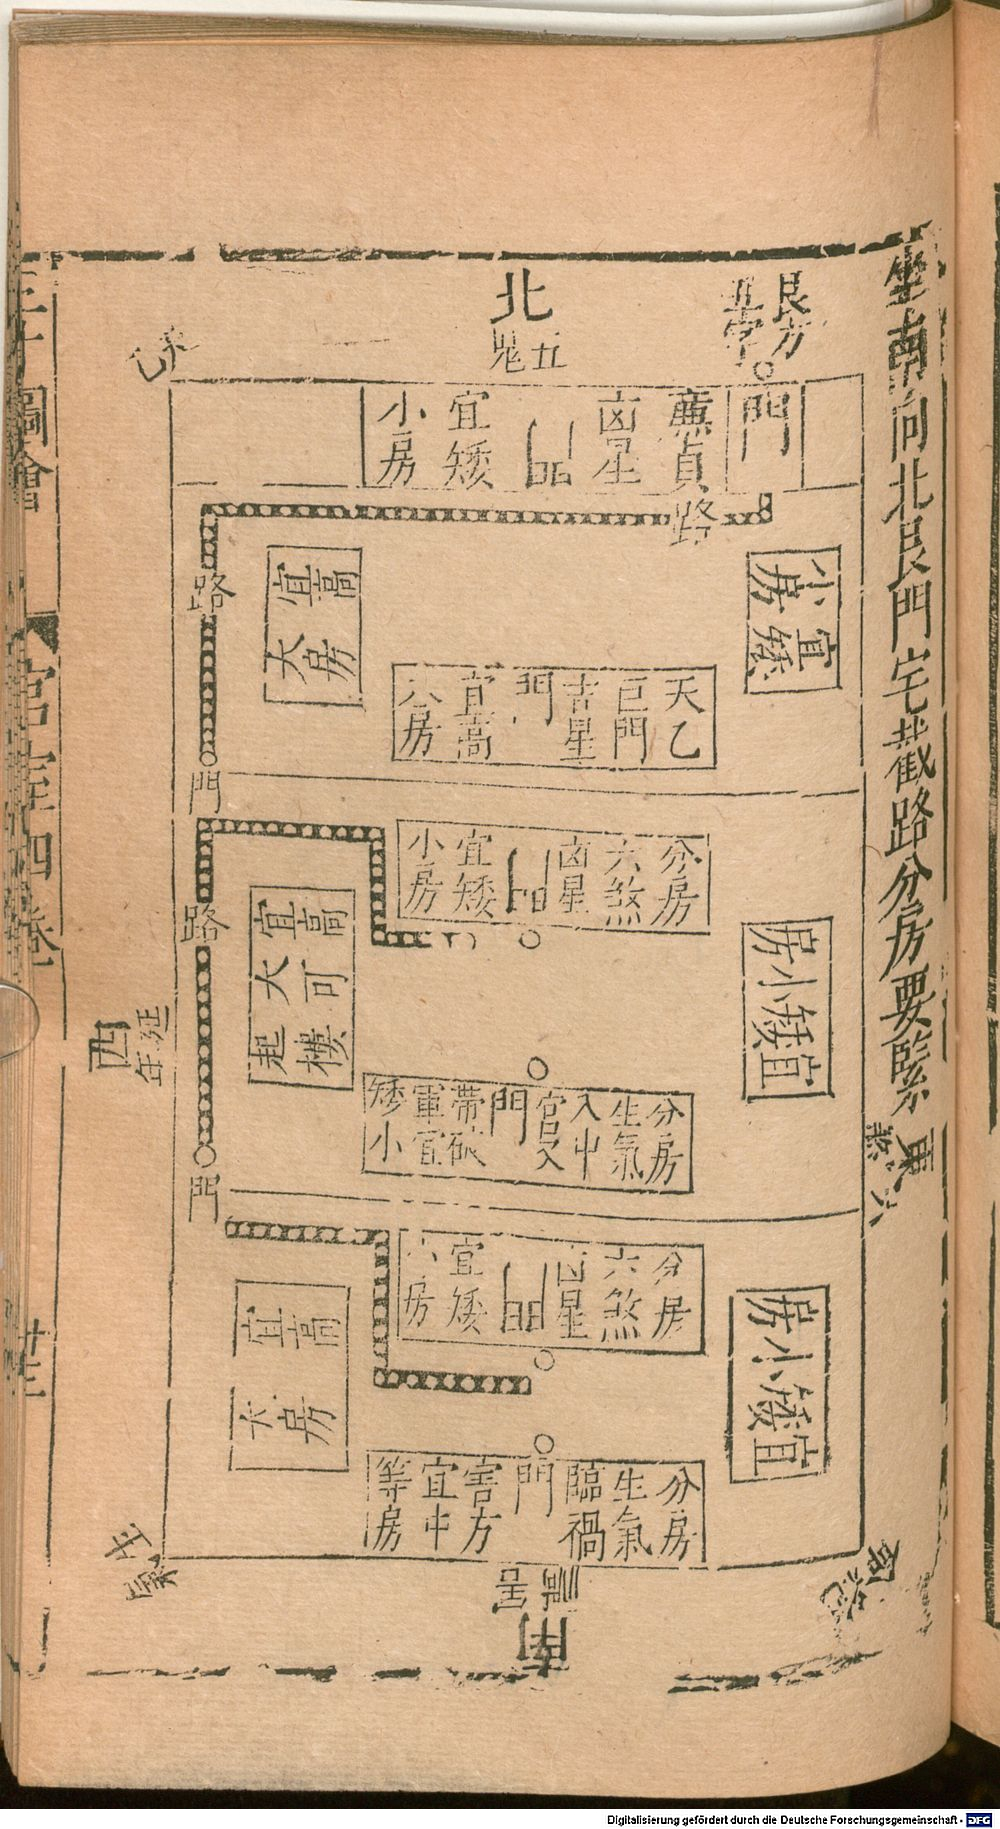 坐南向北艮門宅截路分房要緊
艮方
北
五鬼
天乙
門
廉貞
凶星
門
宜矮
小房
路
路
宜高
大房
小房
宜矮
天乙
巨門
吉星
門
宜高
大房
門
分房
六煞
凶星
門
宜矮
小房
路
宜高
大可
起樓
房小矮宜
西
延年
分房
生氣
入中
門
帶破
軍宜
矮小
東
六煞
門
分房
六煞
凶星
門
宜矮
小房
宜高
大房
房小矮宜
分房
生氣
臨禍
門
害方
宜中
等房
生氣
禍害
南
三才圖會
宮室四卷
廿三
Digitalisierung gefördert durch die Deutsche Forschungsgemeinschaft - DFG